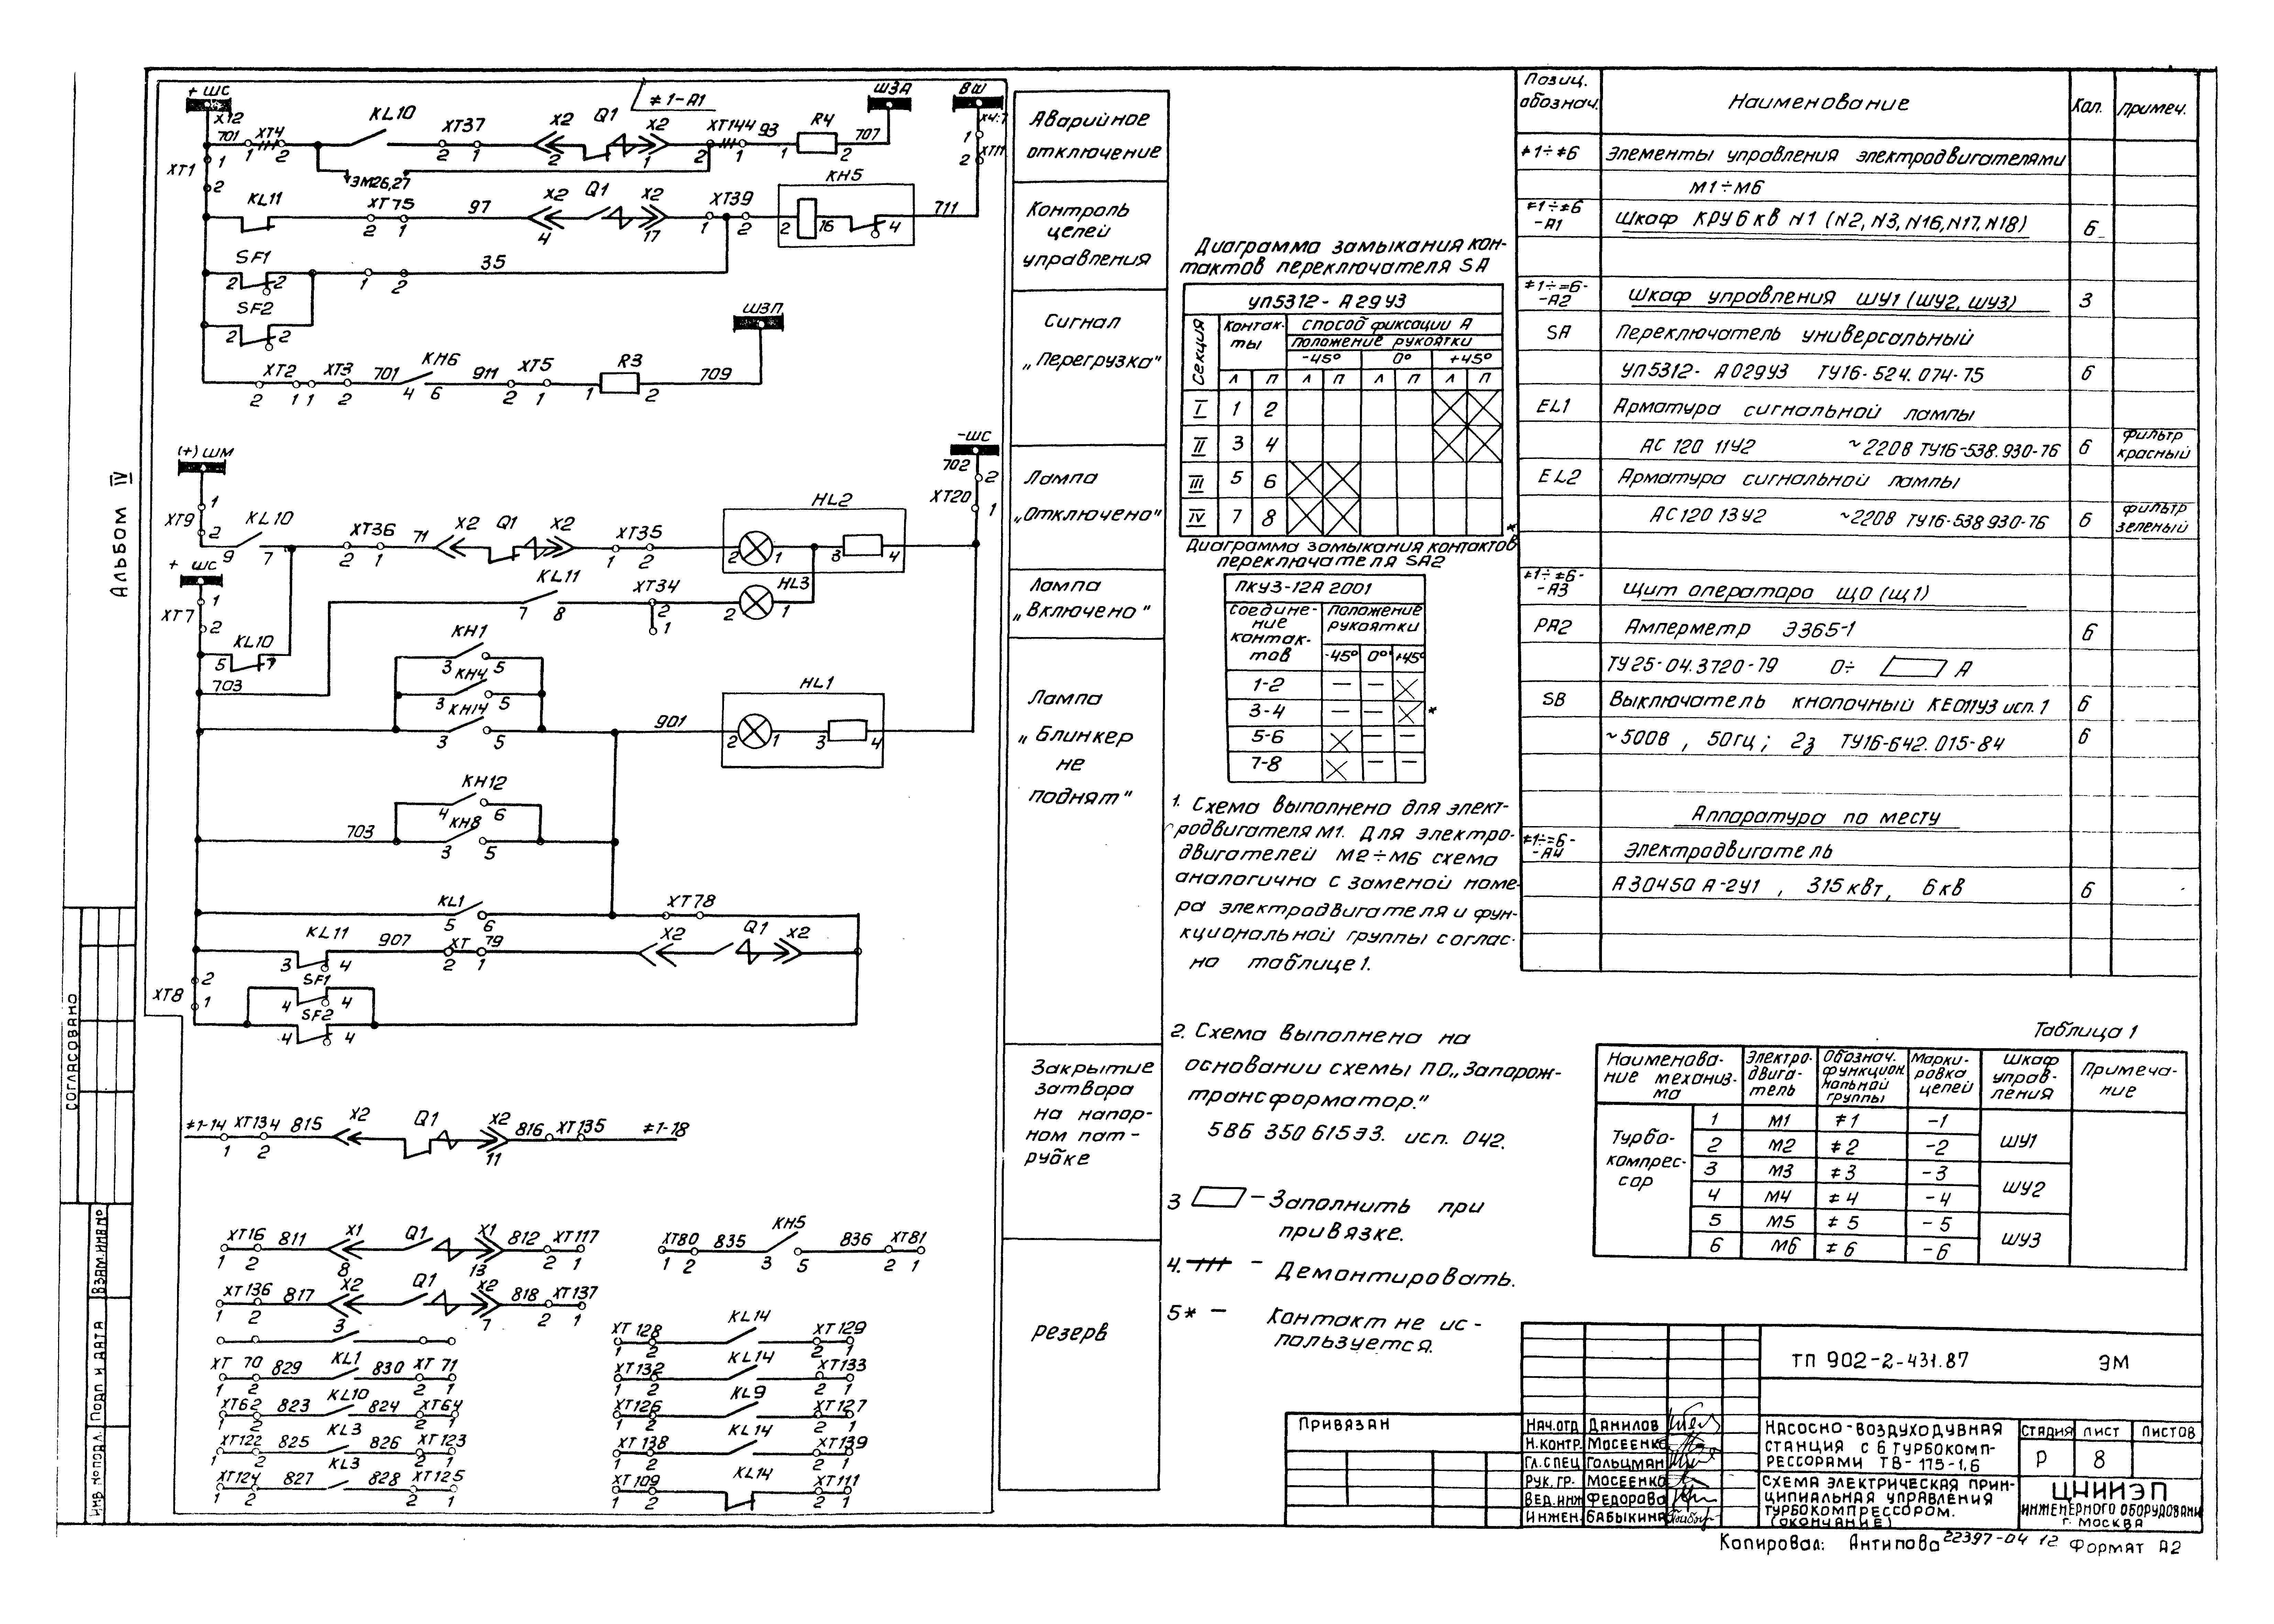 Альбом IV
+ ШС
≠1-А1
ШЗА
ВШ
ХТ2
701 ХТ4 KL10 ХТ37 Х2 Q1 Х2 ХТ144 93 R4 707
1 2 2 1 2 1 2 1 1 2
ХТ1
1
2
ЭМ26,27
Х4:7
1
2 ХТ11
KL11 ХТ75 97 Х2 Q1 Х2 ХТ39 КН5 711
2 1 4 17 1 2 2 16 4
SF1
2 2 1 2 35
SF2
2 2
ШЗП
ХТ2 ХТ3 701 КН6 911 ХТ5 R3 709
2 1 1 2 4 6 2 1 1 2
(+) ШМ
-ШС
702
2
ХТ20
1
1
ХТ9
2
KL10 ХТ36 71 Х2 Q1 Х2 ХТ35 HL2
9 7 2 1 1 2 2 1 3 4
+ ШС
1
ХТ7
2
KL11 ХТ34 HL3
7 8 2 1 2 1
KL10
5 7
703
КН1
3 5
КН4
3 5
КН14
3 5
901
HL1
2 1 3 4
КН12
4 6
703 КН8
3 5
KL1 ХТ78
5 6
KL11 907 ХТ 79 Х2 Q1 Х2
3 4 2 1
2
ХТ8
1
SF1
4 4
SF2
4 4
≠1-14 ХТ134 815 Х2 Q1 Х2 816 ХТ135 ≠1-18
1 2 11
ХТ16 811 Х1 Q1 Х1 812 ХТ117
1 2 8 13 2 1
ХТ136 817 Х2 Q1 Х2 818 ХТ137
1 2 3 7 2 1
ХТ 70 829 KL1 830 ХТ 71
1 2 2 1
ХТ62 823 KL10 824 ХТ64
1 2 2 1
ХТ122 825 KL3 826 ХТ123
1 2 2 1
ХТ124 827 KL3 828 ХТ125
1 2 2 1
ХТ80 835 КН5 836 ХТ81
1 2 3 5 2 1
ХТ 128 KL14 ХТ 129
1 2 2 1
ХТ132 KL14 ХТ133
1 2 2 1
ХТ126 KL9 ХТ127
1 2 2 1
ХТ 138 KL14 ХТ139
1 2 2 1
ХТ109 KL14 ХТ111
1 2 2 1
Аварийное
отключение
Контроль
цепей
управления
Сигнал
„Перегрузка"
Лампа
„Отключено"
Лампа
„Включено"
Лампа
„Блинкер
не
поднят"
Закрытие
затвора
на напор-
ном пат-
рубке
резерв
Диаграмма замыкания кон-
тактов переключателя SA
УП5312- А29У3
Секция
Контак-
ты
способ фиксации А
положение рукоятки
-45° 0° +45°
Л П Л П Л П Л П
I 1 2
II 3 4
III 5 6
IV 7 8
*
Диаграмма замыкания контактов
переключателя SA2
ПКУ3-12А 2001
Соедине-
ние
контак-
тов
Положение
рукоятки
-45° 0° +45°
1-2 — —
3-4 — — *
5-6 — —
7-8 — —
1. Схема выполнена для элект-
родвигателя М1. Для электро-
двигателей М2÷М6 схема
аналогична с заменой номе-
ра электродвигателя и фун-
кциональной группы соглас-
но таблице 1.
2. Схема выполнена на
основании схемы ПО „Запорож-
трансформатор."
5ВБ 350 615ЭЗ. исп. 042.
3 — Заполнить при
привязке.
4. — Демонтировать.
5* — Контакт не ис-
пользуется.
Позиц.
обознач. Наименование Кол. Примеч.
≠1÷≠6 Элементы управления электродвигателями
М1÷М6
≠1÷≠6
-А1 Шкаф КРУ 6 кв N1 (N2, N3, N16, N17, N18) 6
≠1÷=6-
-А2 Шкаф управления ШУ1 (ШУ2, ШУ3) 3
SA Переключатель универсальный
УП5312- А029У3 ТУ16-524.074-75 6
EL1 Арматура сигнальной лампы
АС 120 11У2 ~220В ТУ16-538.930-76 6 фильтр
красный
EL2 Арматура сигнальной лампы
АС120 13У2 ~220В ТУ16-538 930-76 6 фильтр
зеленый
≠1÷≠6-
-А3 Щит оператора ЩО (Щ1)
РА2 Амперметр Э365-1 6
ТУ25-04.3720-79 0÷ А
SB Выключатель кнопочный КЕ011У3 исп.1 6
~500В , 50гц ; 2з ТУ16-642.015-84 6
Аппаратура по месту
≠1÷=6-
-А4 Электродвигатель
А30450 А-2У1 , 315 квт, 6 кв 6
Таблица 1
Наименова-
ние механиз-
ма
Электро-
двига-
тель
Обознач.
функцион
нальной
группы
Марки-
ровка
цепей
Шкаф
управ-
ления
Примеча-
ние
Турбо-
компрес-
сор
1 М1 ≠1 -1
2 М2 ≠2 -2
ШУ1
3 М3 ≠3 -3
4 М4 ≠4 -4
ШУ2
5 М5 ≠5 -5
6 М6 ≠6 -6
ШУ3
ТП 902-2-431.87 ЭМ
Привязан
Нач.отд Данилов
Н.контр. Мосеенко
Гл.спец Гольцман
Рук. гр. Мосеенко
Вед.инж Федорова
Инжен. Бабыкина
Насосно-воздуходувная
станция с 6 турбокомп-
рессорами ТВ-175-1,6
Стадия Лист Листов
Р 8
Схема электрическая прин-
ципиальная управления
турбокомпрессором.
(окончание)
ЦНИИЭП
инженерного оборудовани
г. Москва
Копировал: Антипова 22397-04 12 Формат А2
СОГЛАСОВАНО
Взам.инв№
Подп и дата
Инв №подл.